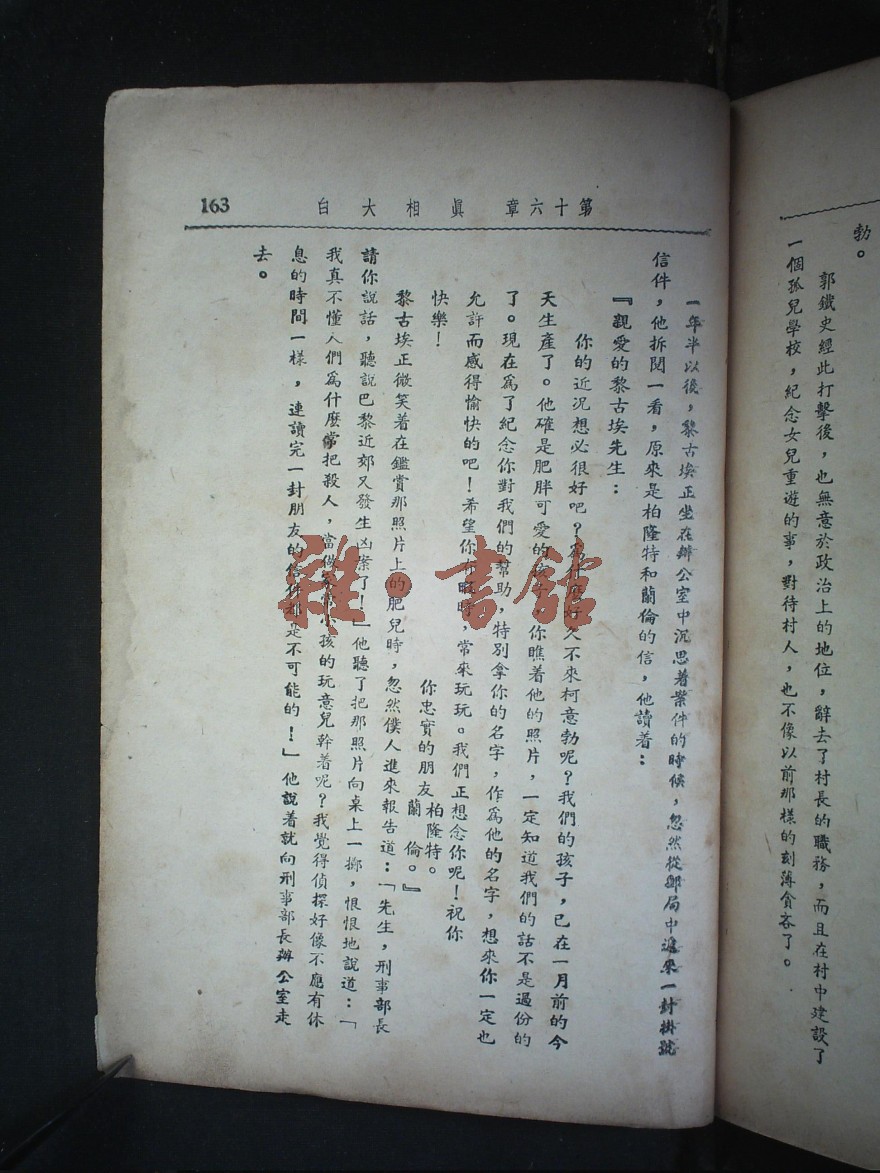 勃。
郭鐵史經此打擊後，也無意於政治上的地位，辭去了村長的職務，而且在村中建設了
一個孤兒學校，紀念女兒重遊的事，對待村人，也不像以前那樣的刻薄貪吝了。
第十六章 眞相大白 163
一年半以後，黎古埃正坐在辦公室中沉思着案件的時候，忽然從郵局中遞來一封掛號
信件，他拆閱一看，原來是柏隆特和蘭倫的信，他讀着：
『親愛的黎古埃先生：
你的近況想必很好吧？爲什麼好久不來柯意勃呢？我們的孩子，已在一月前的今
天生產了。他確是肥胖可愛的孩子，你瞧着他的照片，一定知道我們的話不是過份的
了。現在爲了紀念你對我們的幫助，特別拿你的名字，作爲他的名字，想來你一定也
允許而感得愉快的吧！希望你有暇時，常來玩玩。我們正想念你呢！祝你
快樂！
你忠實的朋友柏隆特。
蘭倫。』
黎古埃正微笑着在鑑賞那照片上的肥兒時，忽然僕人進來報告道：「先生，刑事部長
請你說話，聽說巴黎近郊又發生凶案了！」他聽了把那照片向桌上一擲，恨恨地說道：「
我真不懂人們爲什麼常把殺人，當做孩的玩意兒幹着呢？我覺得偵探好像不應有休
息的時間一樣，連讀完一封朋友的信件都是不可能的！」他說着就向刑事部長辦公室走
去。
雜·書館